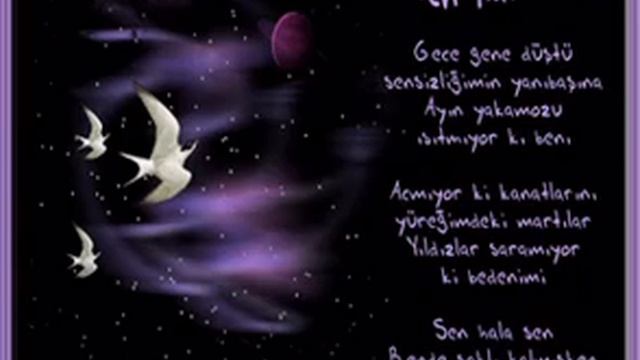 Gece gene düştü
sensizliğimin yanıbaşına
Ayın yakamozu
ısıtmıyor ki beni
Açmıyor ki kanatlarını
yüreğimdeki martılar
Yıldızlar saramıyor
ki bedenimi
Sen hala sen